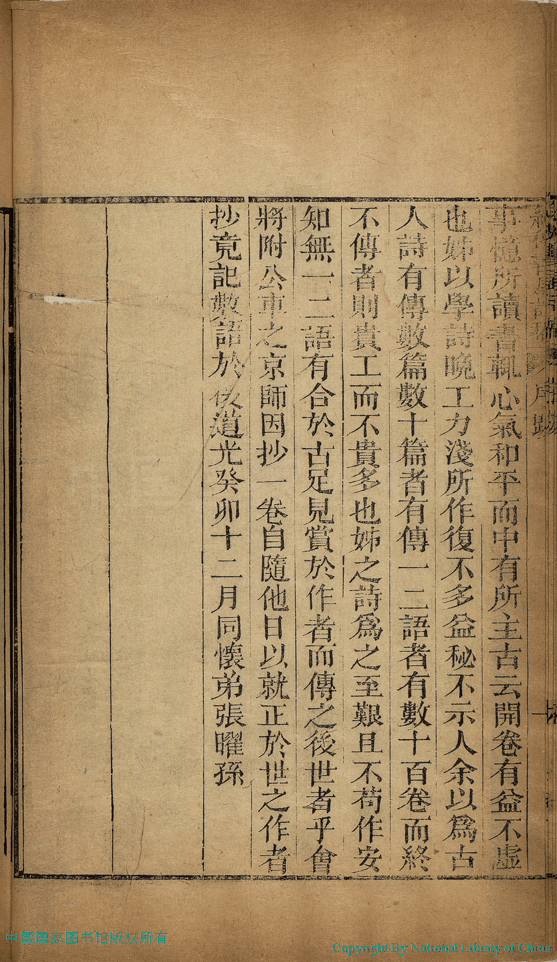 事憶所讀書輒心氣和平而中有所主古云開卷有益不虛
也姊以學詩晚工力淺所作復不多益秘不示人余以爲古
人詩有傳數篇數十篇者有傳一二語者有數十百卷而終
不傳者則貴工而不貴多也姊之詩爲之至艱且不苟作安
知無一二語有合於古足見賞於作者而傳之後世者乎會
將附公車之京師因抄一卷自隨他日以就正於世之作者
抄竟記數語於後道光癸卯十二月同懷弟張曜孫
中國國家图书馆版权所有
Copyright By National Library of China